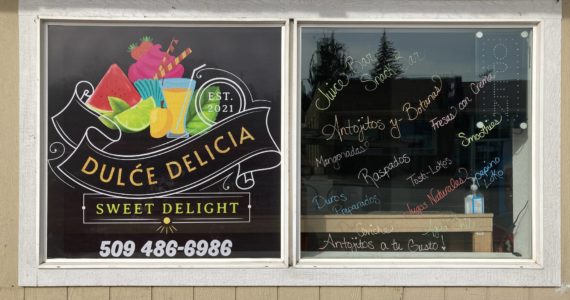 EST.
2021
DULĆE DELICIA
SWEET DELIGHT
509 486-6986
Juice Bar
Snack Bar
Antojitos y Botanas
Fresas con Crema
Smoothies
Mangonadas
Raspados
Tosti-Lokos
Pepino
Loko
Duros
Preparados
Jugos Naturales
Ceviche
Antojitos a tu Gusto!
OPEN